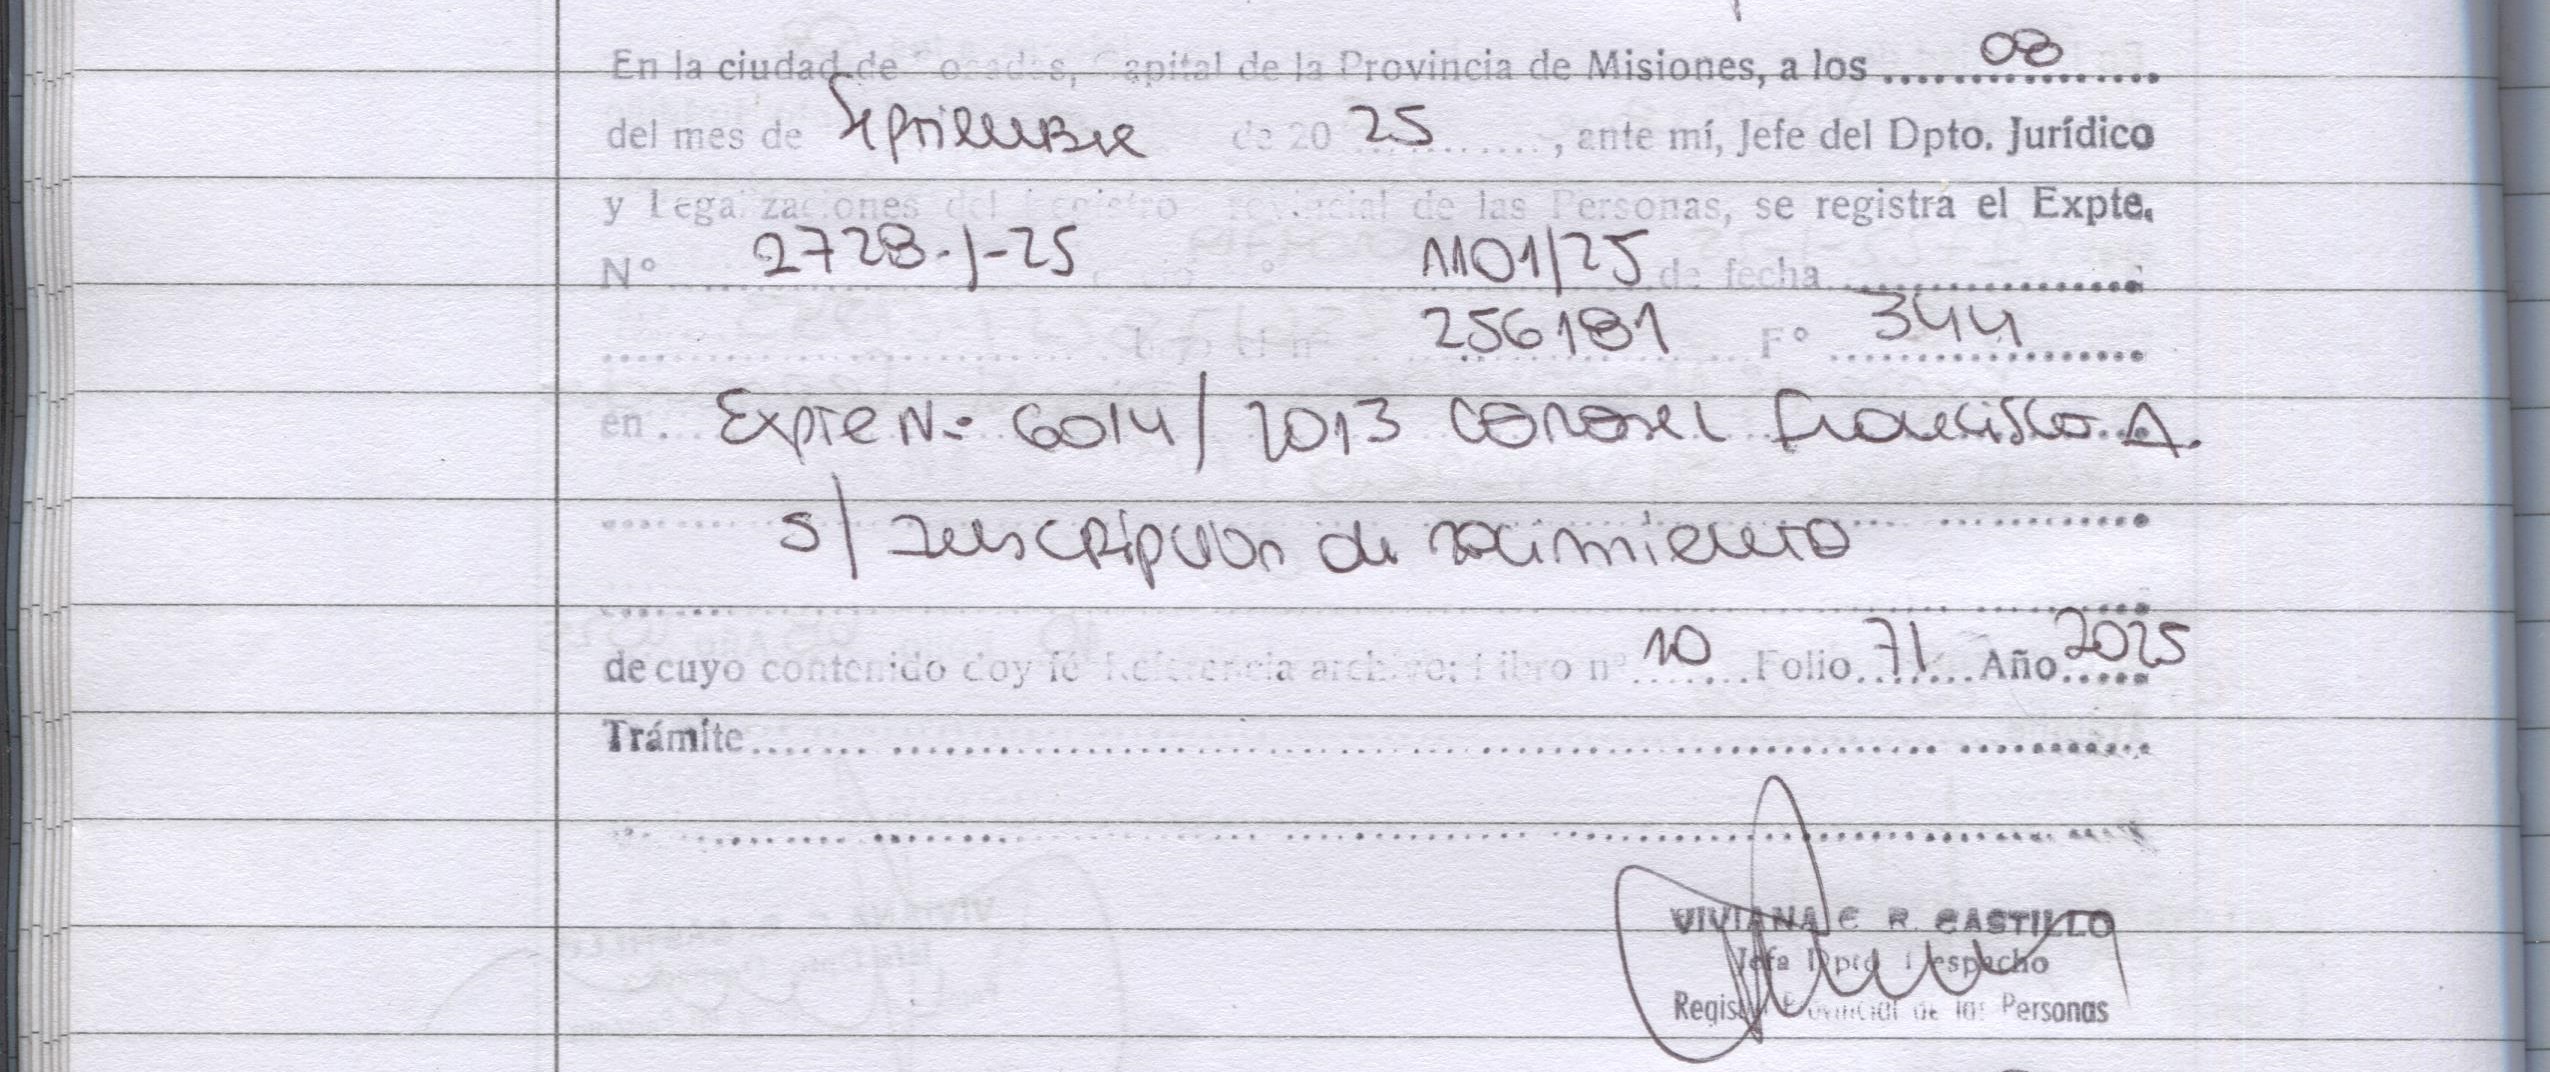 En la ciudad de Posadas, Capital de la Provincia de Misiones, a los 08
del mes de Septiembre de 20 25, ante mí, Jefe del Dpto. Jurídico
y Legalizaciones del Registro Provincial de las Personas, se registra el Expte.
N° 2728-J-25 1101/25 de fecha
256181 F° 344
en Expte N° 6014/2013 Coronel Francisco A.
s/ Inscripcion de nacimiento
de cuyo contenido doy fé Referencia archivo: Libro n° 10 Folio 71 Año 2025
Trámite
VIVIANA C. R. CASTILLO
Jefa Dpto. Despacho
Registro Provincial de las Personas